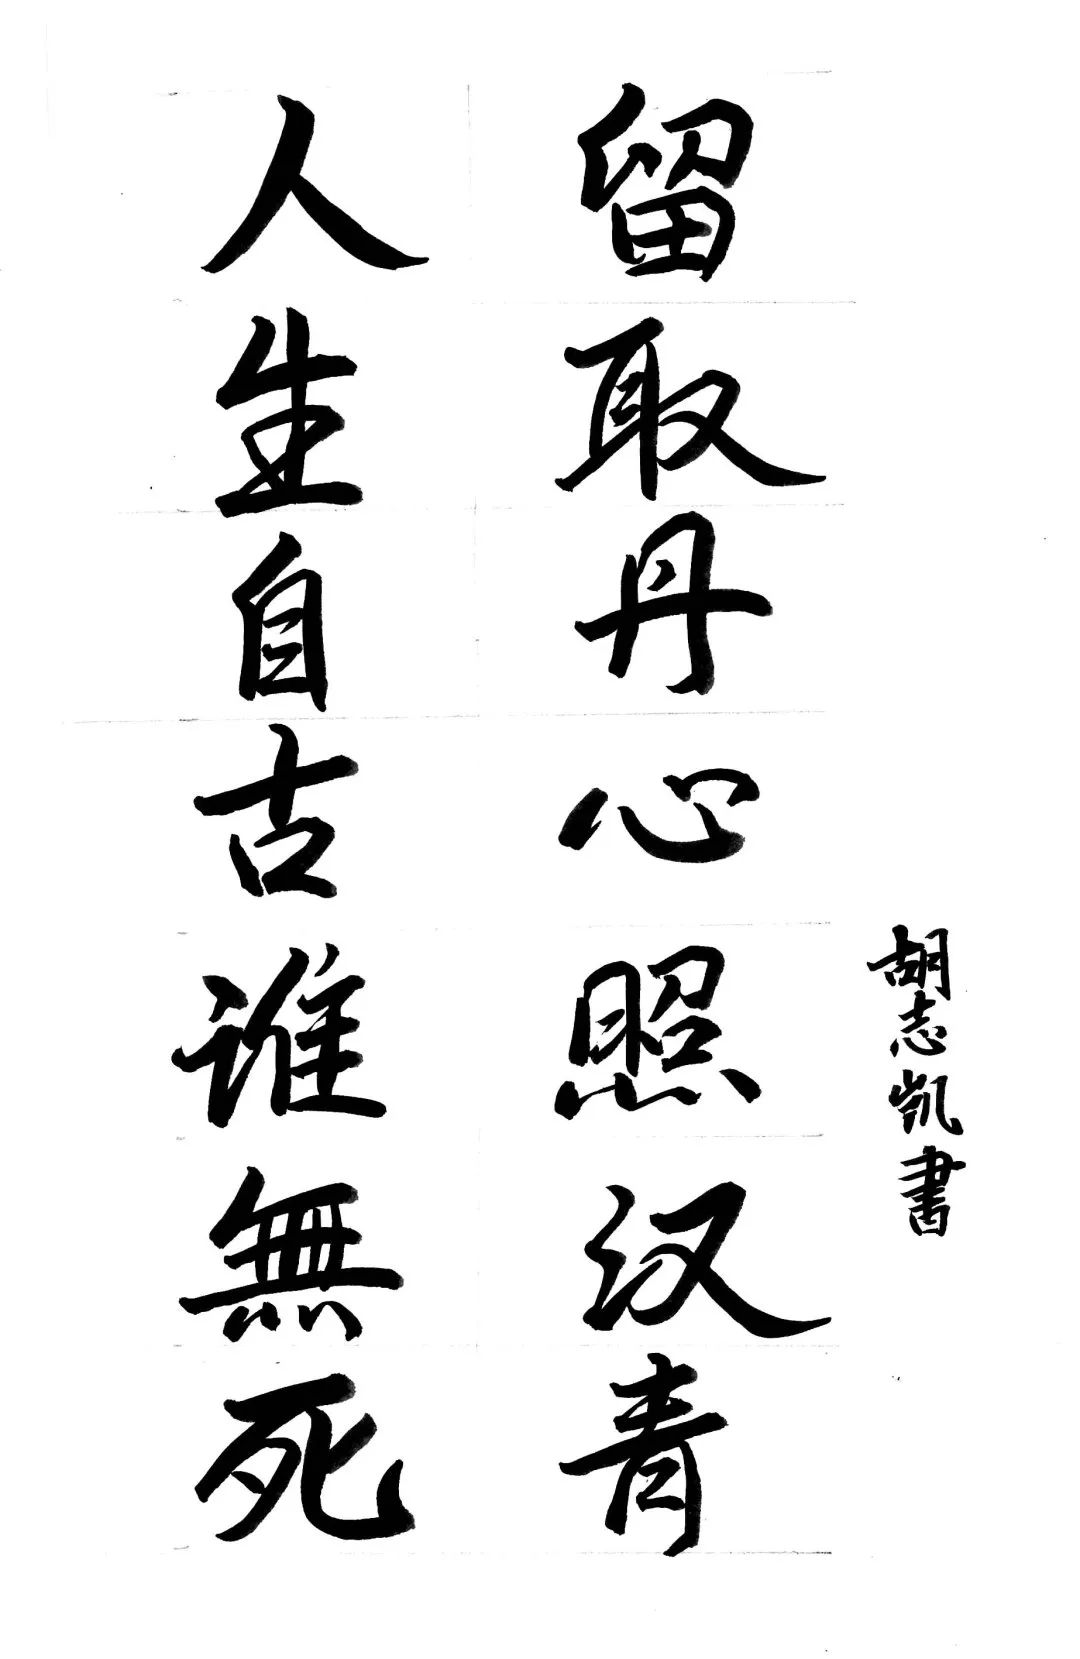 人生自古谁無死
留取丹心照汉青
胡志凯書